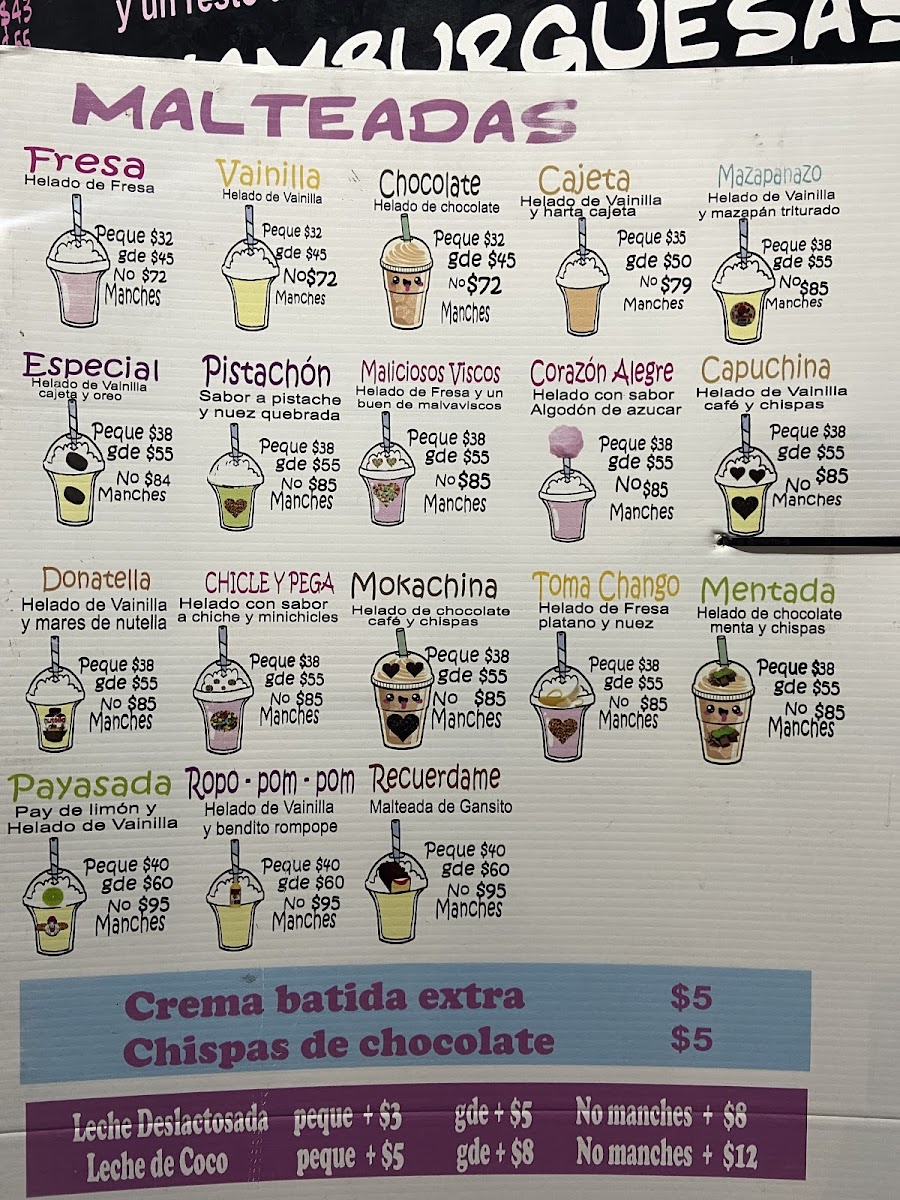 $43
$55
y un resto
HAMBURGUESAS
MALTEADAS
Fresa
Helado de Fresa
Peque $32
gde $45
No $72
Manches
Vainilla
Helado de Vainilla
Peque $32
gde $45
No $72
Manches
Chocolate
Helado de chocolate
Peque $32
gde $45
No $72
Manches
Cajeta
Helado de Vainilla
y harta cajeta
Peque $35
gde $50
No $79
Manches
Mazapanazo
Helado de Vainilla
y mazapán triturado
Peque $38
gde $55
No $85
Manches
Especial
Helado de Vainilla
cajeta y oreo
Peque $38
gde $55
No $84
Manches
Pistachón
Sabor a pistache
y nuez quebrada
Peque $38
gde $55
No $85
Manches
Maliciosos Viscos
Helado de Fresa y un
buen de malvaviscos
Peque $38
gde $55
No $85
Manches
Corazón Alegre
Helado con sabor
Algodón de azucar
Peque $38
gde $55
No $85
Manches
Capuchina
Helado de Vainilla
café y chispas
Peque $38
gde $55
No $85
Manches
Donatella
Helado de Vainilla
y mares de nutella
nutella
Peque $38
gde $55
No $85
Manches
CHICLE Y PEGA
Helado con sabor
a chiche y minichicles
Peque $38
gde $55
No $85
Manches
Mokachina
Helado de chocolate
café y chispas
Peque $38
gde $55
No $85
Manches
Toma Chango
Helado de Fresa
platano y nuez
Peque $38
gde $55
No $85
Manches
Mentada
Helado de chocolate
menta y chispas
Peque $38
gde $55
No $85
Manches
Payasada
Pay de limón y
Helado de Vainilla
Peque $40
gde $60
No $95
Manches
Ropo - pom - pom
Helado de Vainilla
y bendito rompope
Peque $40
gde $60
No $95
Manches
Recuerdame
Malteada de Gansito
Peque $40
gde $60
No $95
Manches
Crema batida extra $5
Chispas de chocolate $5
Leche Deslactosada peque + $3 gde + $5 No manches + $8
Leche de Coco peque + $5 gde + $8 No manches + $12